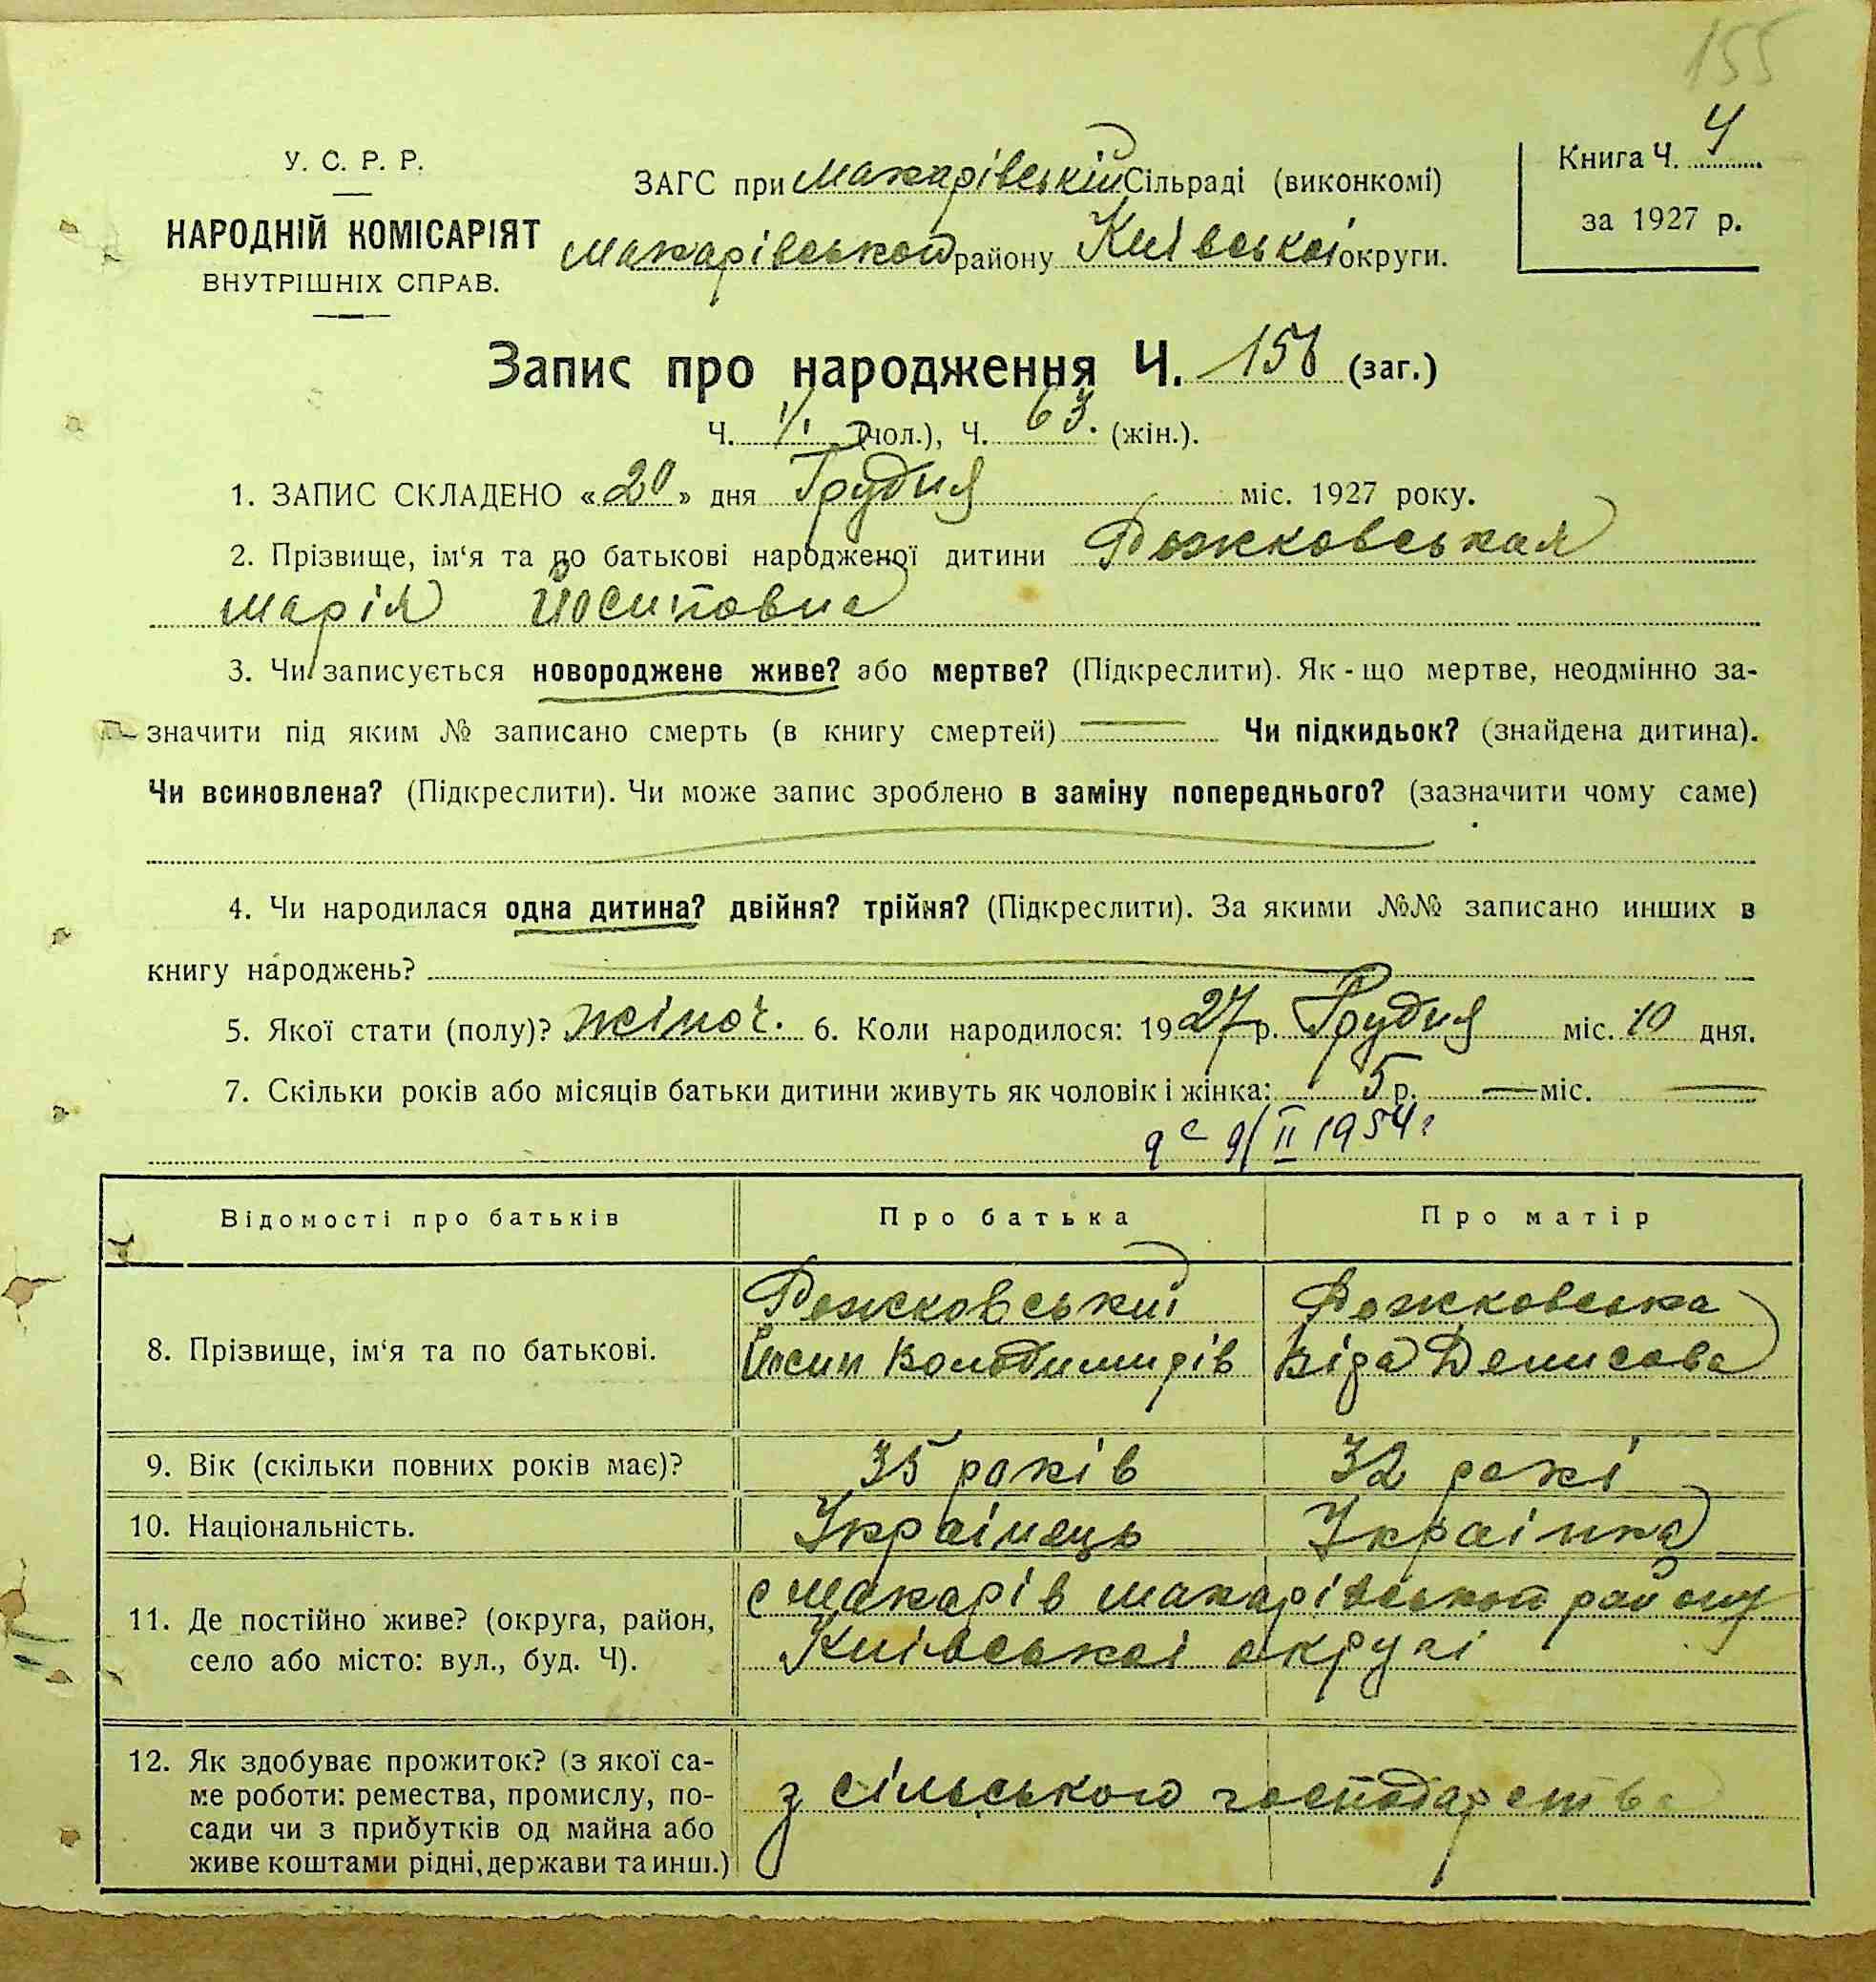 155
У. С. Р. Р.
НАРОДНІЙ КОМІСАРІЯТ
ВНУТРІШНІХ СПРАВ.
ЗАГС при Макарівській Сільраді (виконкомі)
Макарівського району Київської округи.
Книга Ч. 4
за 1927 р.
Запис про народження Ч. 156 (заг.)
Ч. (чол.), Ч. 63. (жін.).
1. ЗАПИС СКЛАДЕНО «20» дня Грудня міс. 1927 року.
2. Прізвище, ім‘я та по батькові народженої дитини Рожковськая
Марія Йосиповна
3. Чи записується новороджене живе? або мертве? (Підкреслити). Як - що мертве, неодмінно за-
значити під яким № записано смерть (в книгу смертей) Чи підкидьок? (знайдена дитина).
Чи всиновлена? (Підкреслити). Чи може запис зроблено в заміну попереднього? (зазначити чому саме)
4. Чи народилася одна дитина? двійня? трійня? (Підкреслити). За якими №№ записано инших в
книгу народжень?
5. Якої стати (полу)? жіноч. 6. Коли народилося: 1927 р. Грудня міс. 10 дня.
7. Скільки років або місяців батьки дитини живуть як чоловік і жінка: 5 р. — міс.
9/II 1954 г
Відомості про батьків Про батька Про матір
8. Прізвище, ім‘я та по батькові.
Рожковський Рожковська
Йосип Володимирів Віра Денисова
9. Вік (скільки повних років має)? 35 років 32 рокі
10. Національність. Українець Українка
11. Де постійно живе? (округа, район,
село або місто: вул., буд. Ч).
с Макарів Макарівського району
Київської округі
12. Як здобуває прожиток? (з якої са-
ме роботи: ремества, промислу, по-
сади чи з прибутків од майна або
живе коштами рідні, держави та инш.)
з сільського господарства